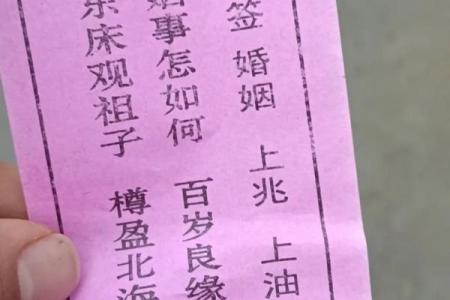 签 婚姻 上兆 上油
姻事怎如何 百岁良缘
东床观祖子 樽盈北海